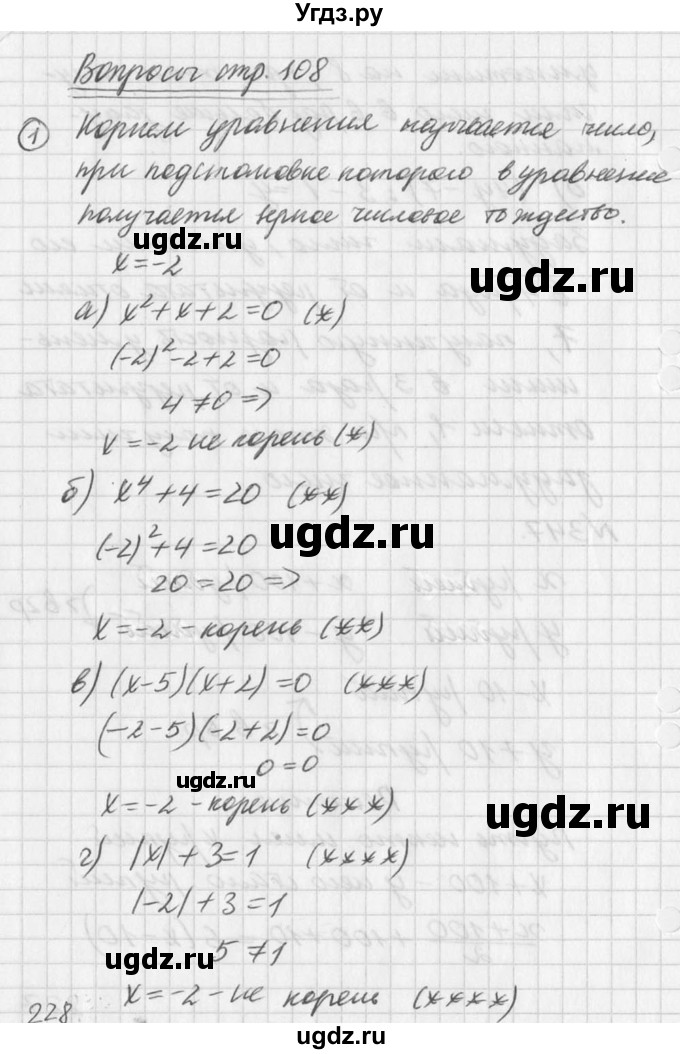 Угдз.ру
Вопросы стр. 108
1 Корнем уравнения называется число,
при подстановке которого в уравнение
получается верное числовое тождество.
ugdz.ru
x=-2
ugdz.ru
а) x²+x+2=0 (*)
(-2)²-2+2=0
4≠0 =>
x=-2 не корень (*)
б) x⁴+4=20 (**)
ugdz.ru
(-2)²+4=20
20=20 =>
x=-2 - корень (**)
в) (x-5)(x+2)=0 (***)
(-2-5)(-2+2)=0
0=0
ugdz.ru
x=-2 - корень (***)
ugdz.ru
г) |x|+3=1 (****)
|-2|+3=1
5≠1
ugdz.ru
x=-2 - не корень (****)
228
ugdz.ru